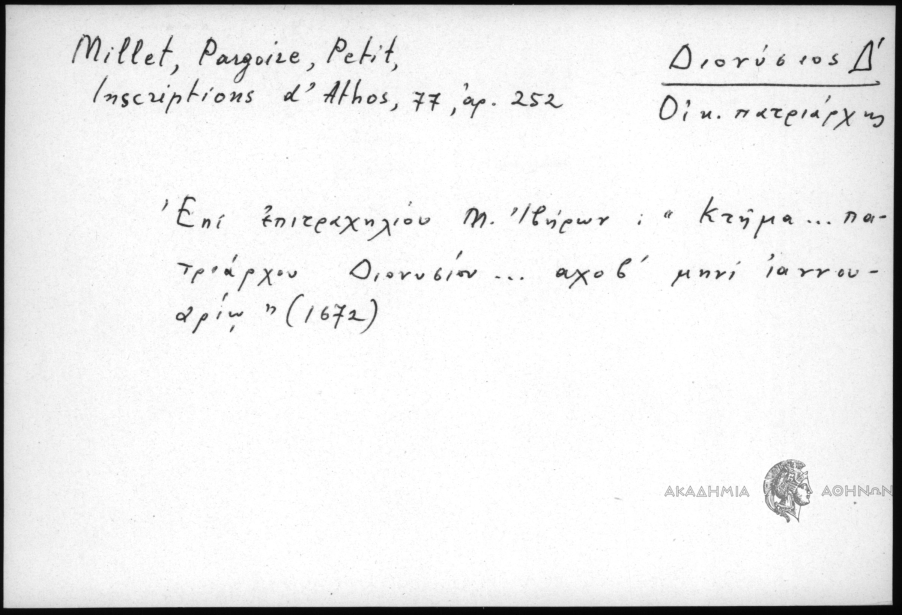 Millet, Pargoire, Petit,
Inscriptions d'Athos, 77, ἀρ. 252
Διονύσιος Δ´
Οἰκ. πατριάρχης
Ἐπί ἐπιτραχηλίου Μ. Ἰβήρων : "Κτῆμα... πα-
τριάρχου Διονυσίου... αχοβ´ μηνί ἰαννου-
αρίῳ" (1672)
ΑΚΑΔΗΜΙΑ ΑΘΗΝΩΝ